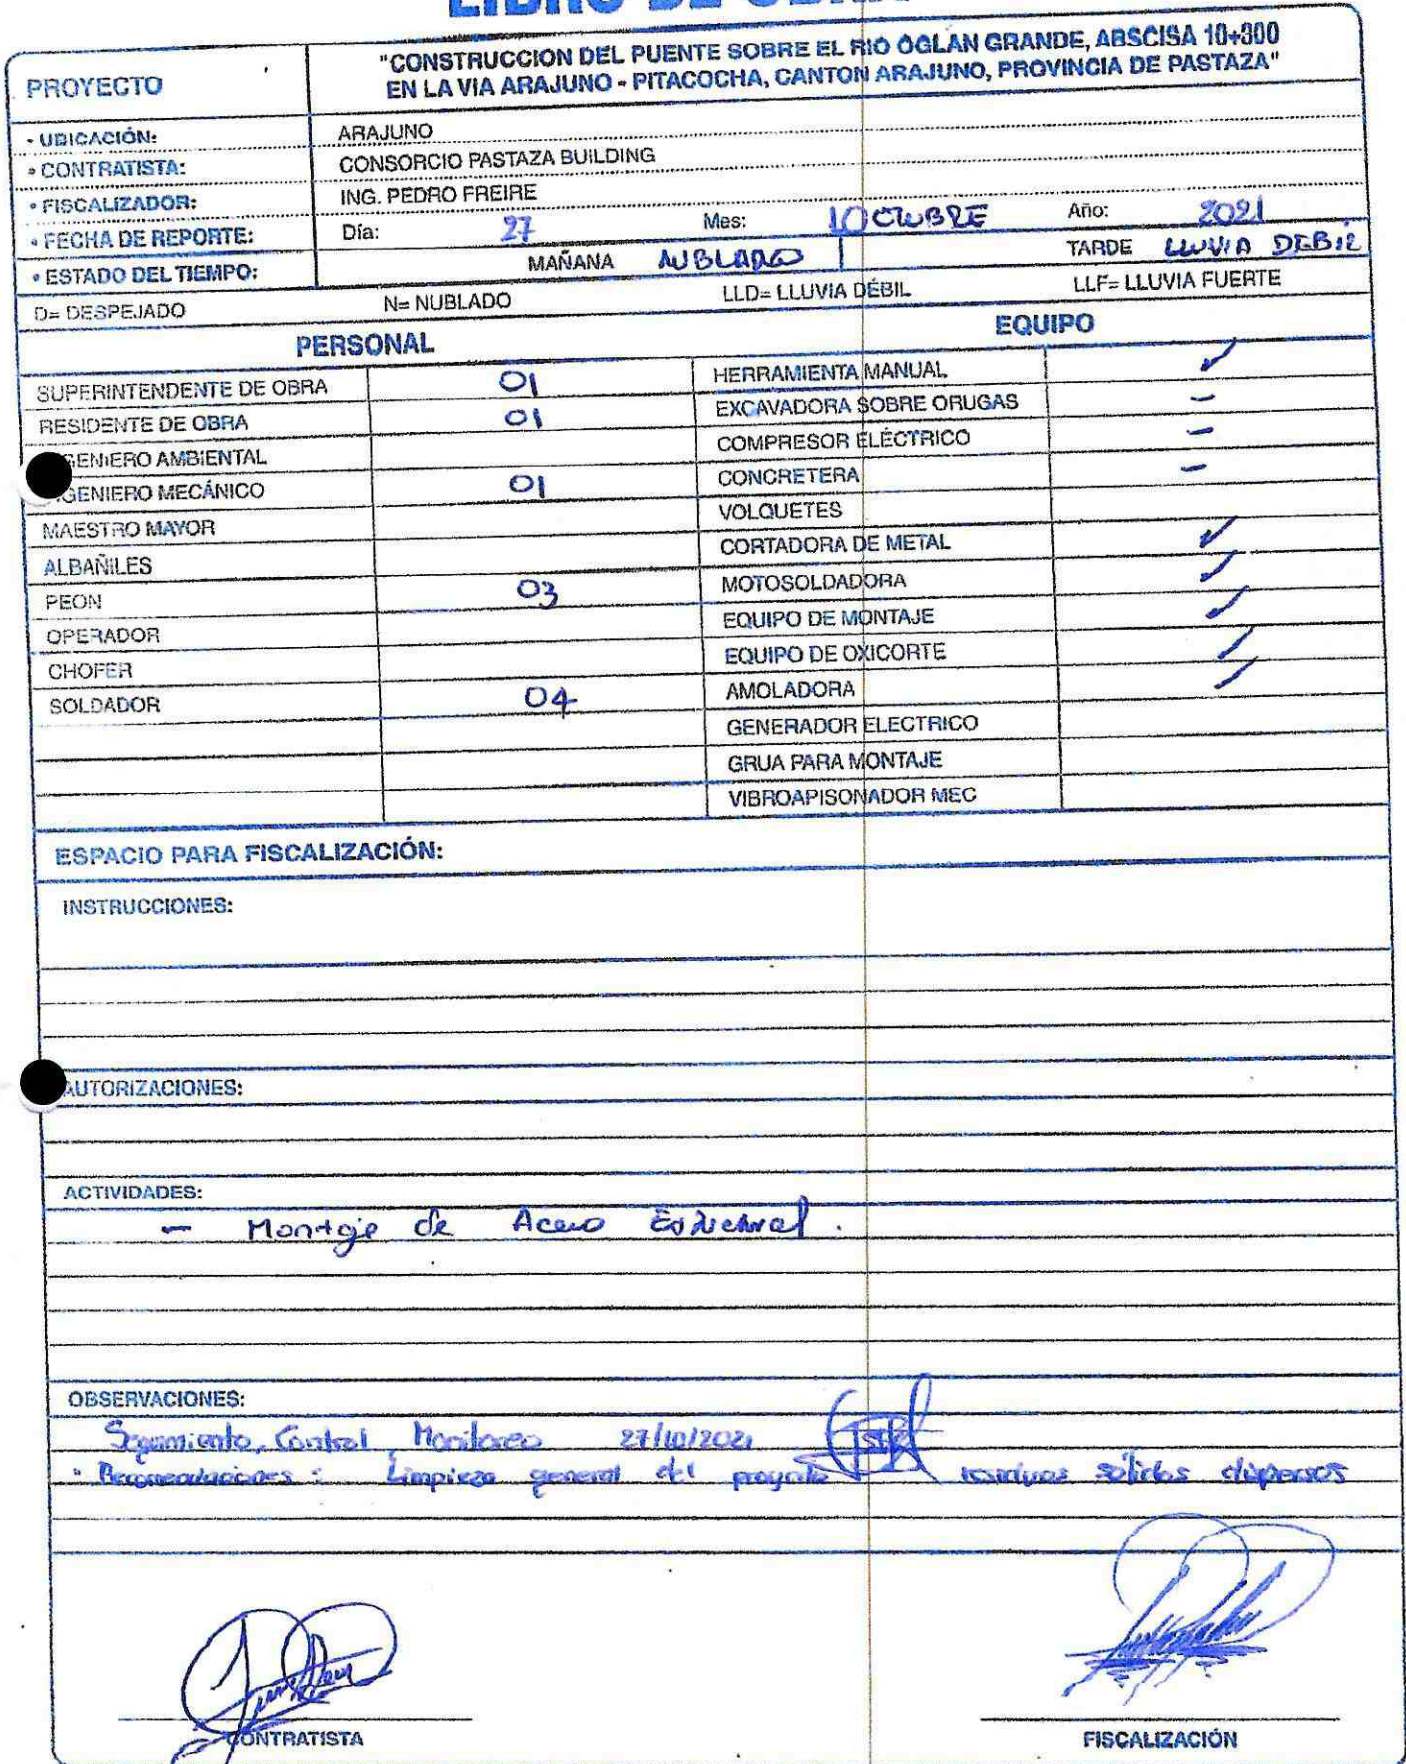 LIBRO DE OBRA
PROYECTO
"CONSTRUCCION DEL PUENTE SOBRE EL RIO OGLAN GRANDE, ABSCISA 10+300
EN LA VIA ARAJUNO - PITACOCHA, CANTON ARAJUNO, PROVINCIA DE PASTAZA"
• UBICACIÓN: ARAJUNO
• CONTRATISTA: CONSORCIO PASTAZA BUILDING
• FISCALIZADOR: ING. PEDRO FREIRE
• FECHA DE REPORTE: Día: 27 Mes: 10 OCTUBRE Año: 2021
• ESTADO DEL TIEMPO: MAÑANA NUBLADO TARDE LLUVIA DEBIL
D= DESPEJADO N= NUBLADO LLD= LLUVIA DÉBIL LLF= LLUVIA FUERTE
PERSONAL EQUIPO
SUPERINTENDENTE DE OBRA 01 HERRAMIENTA MANUAL ✓
RESIDENTE DE OBRA 01 EXCAVADORA SOBRE ORUGAS -
GENIERO AMBIENTAL COMPRESOR ELÉCTRICO -
GENIERO MECÁNICO 01 CONCRETERA -
MAESTRO MAYOR VOLQUETES
ALBAÑILES CORTADORA DE METAL ✓
PEON 03 MOTOSOLDADORA ✓
OPERADOR EQUIPO DE MONTAJE ✓
CHOFER EQUIPO DE OXICORTE ✓
SOLDADOR 04 AMOLADORA ✓
GENERADOR ELECTRICO
GRUA PARA MONTAJE
VIBROAPISONADOR MEC
ESPACIO PARA FISCALIZACIÓN:
INSTRUCCIONES:
AUTORIZACIONES:
ACTIVIDADES:
- Montaje de Acero Estructural.
OBSERVACIONES:
Seguimiento, Control, Monitoreo 27/10/2021
• Recomendaciones: Limpieza general del proyecto residuos sólidos dispersos
CONTRATISTA FISCALIZACIÓN